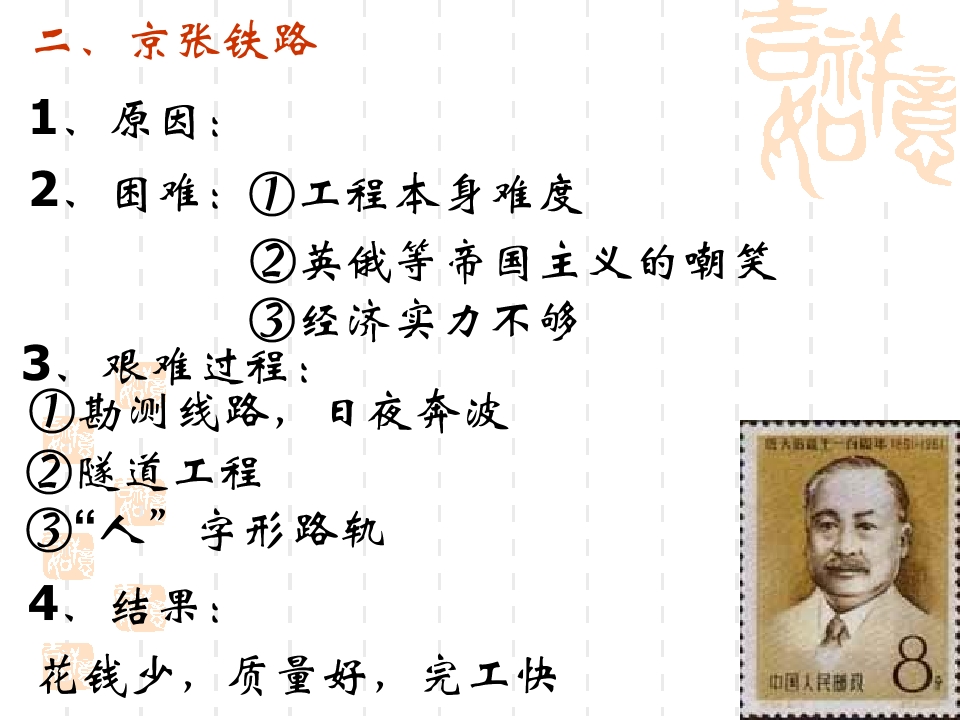 二、京张铁路
吉祥
如意
1、原因：
2、困难：①工程本身难度
②英俄等帝国主义的嘲笑
③经济实力不够
3、艰难过程：
①勘测线路，日夜奔波
②隧道工程
③“人”字形路轨
4、结果：
花钱少，质量好，完工快
1861-1961
8分
中国人民邮政